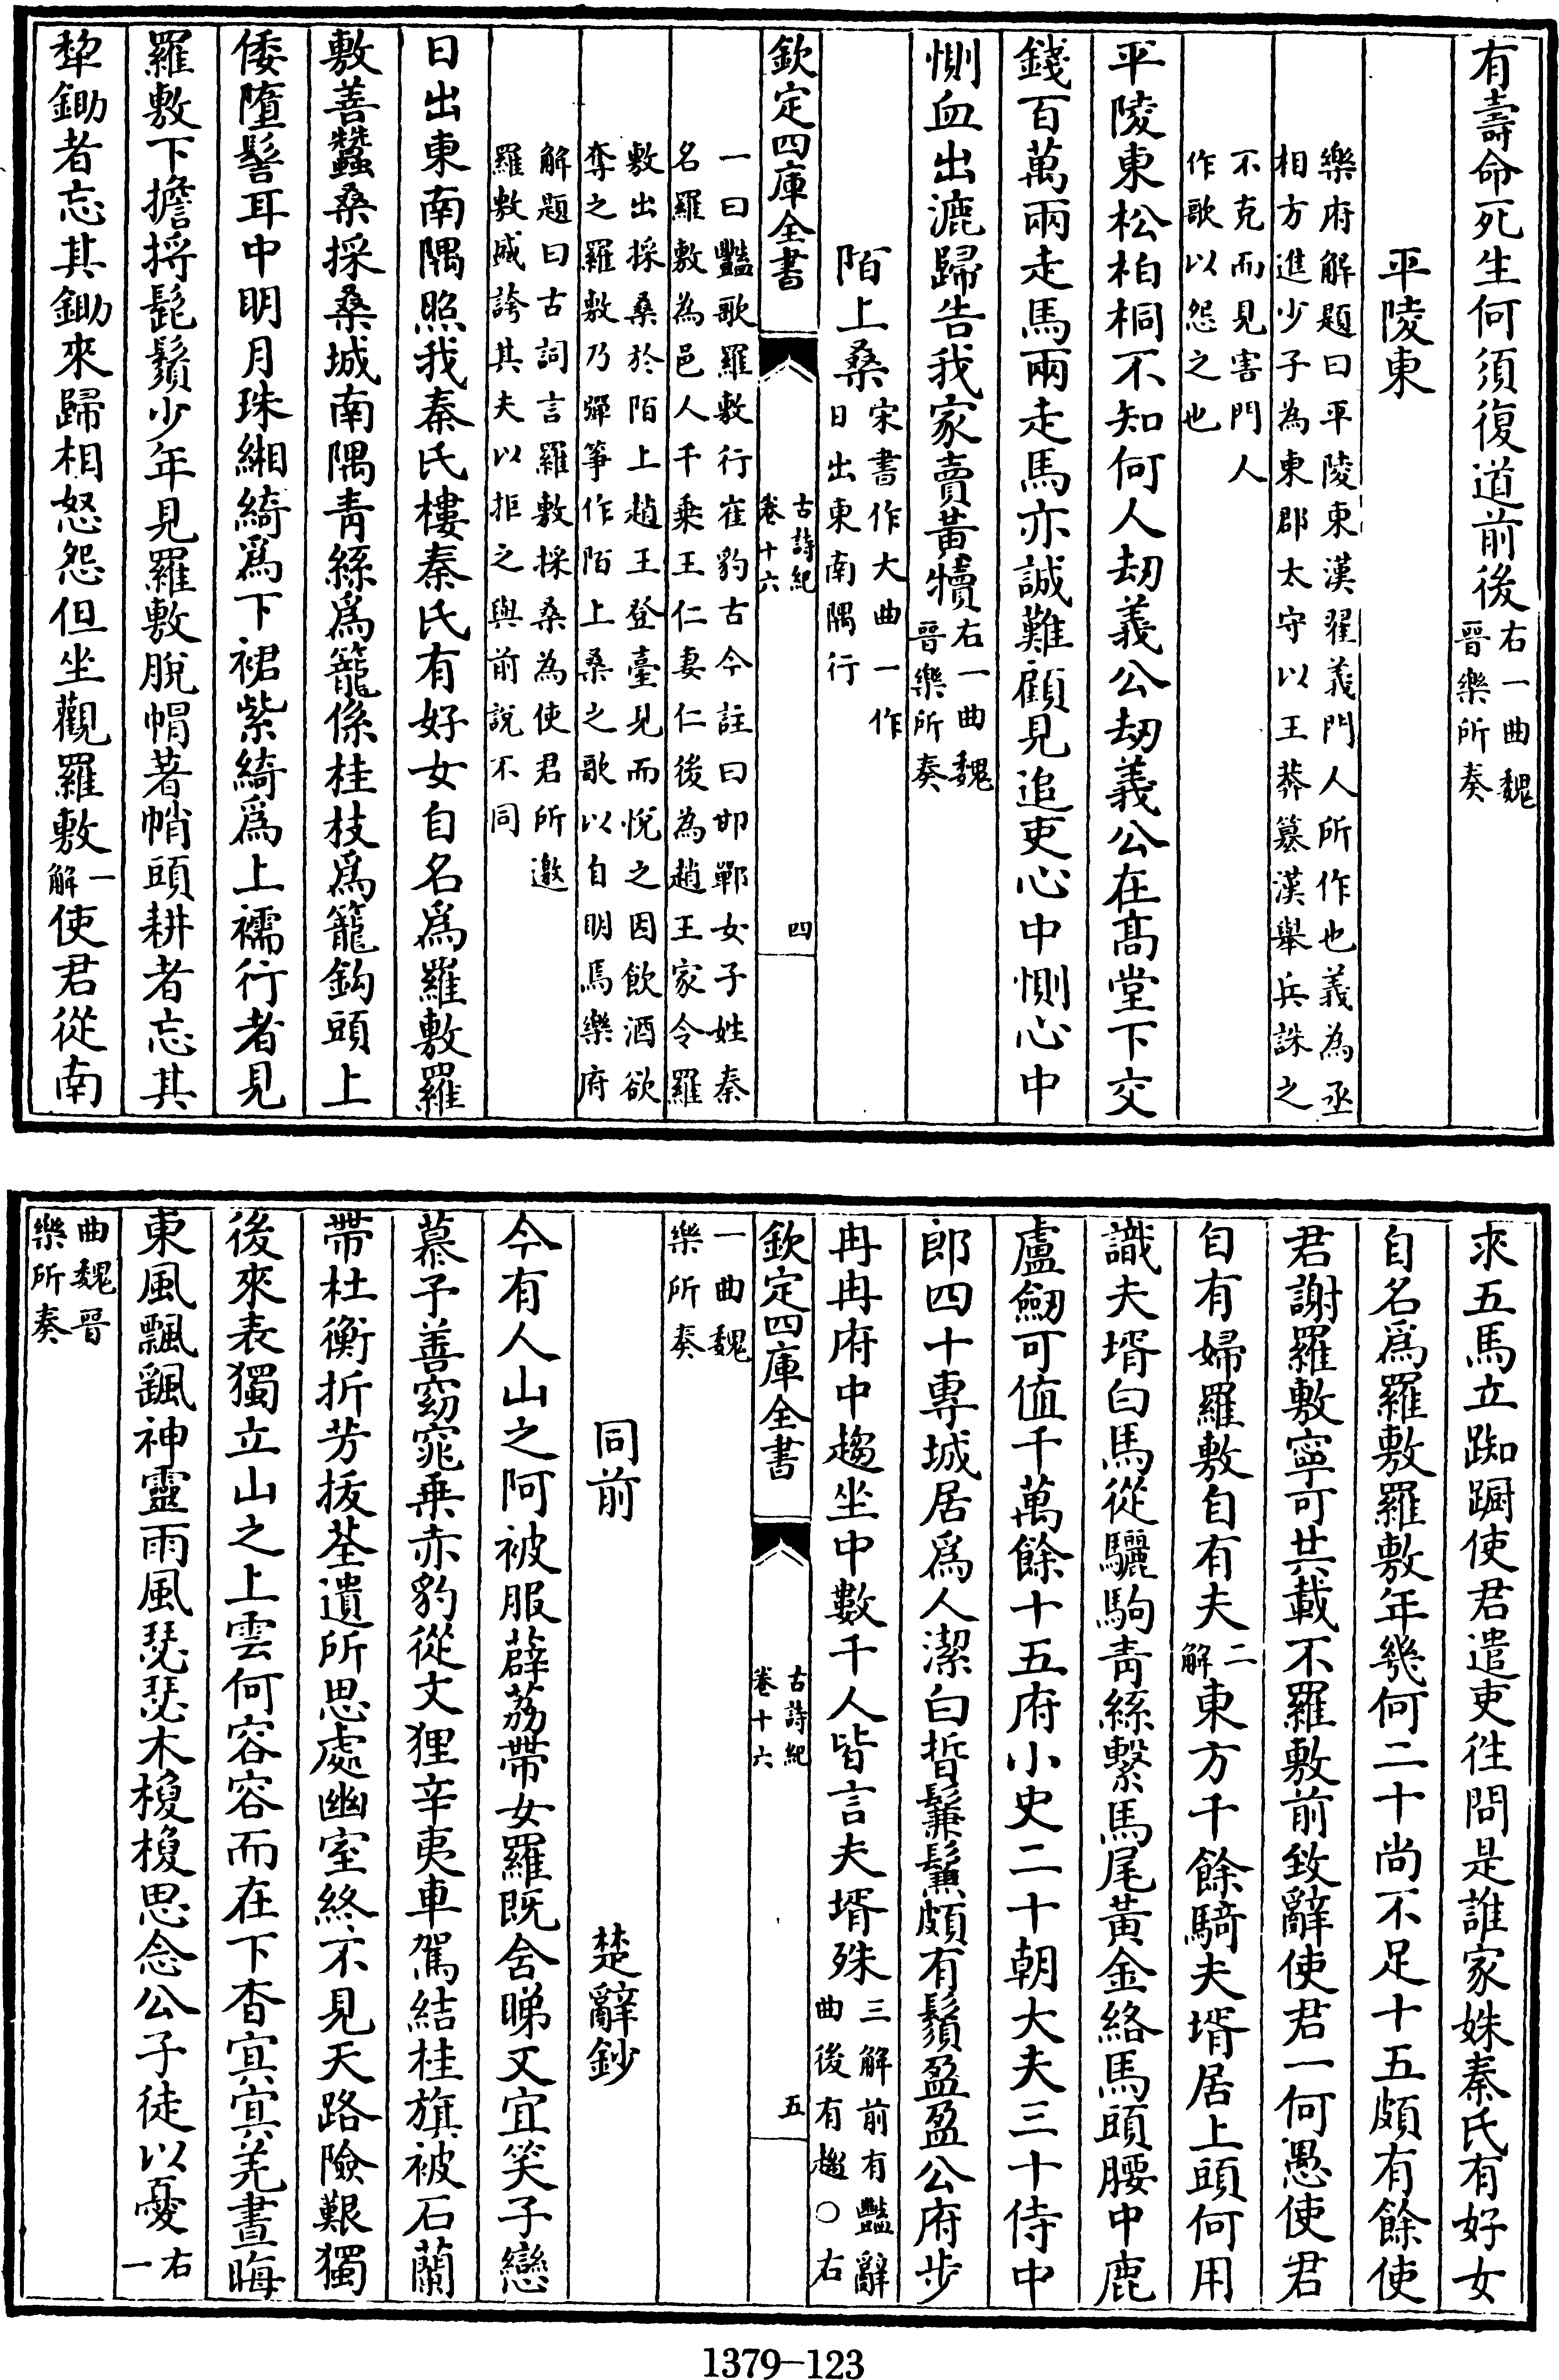 有壽命死生何須復道前後右一曲魏晉樂所奏
平陵東
樂府解題曰平陵東漢翟義門人所作也義為丞
相方進少子為東郡太守以王莽篡漢舉兵誅之
不克而見害門人
作歌以怨之也
平陵東松柏桐不知何人刼義公刼義公在髙堂下交
錢百萬兩走馬兩走馬亦誠難顧見追吏心中惻心中
惻血出漉歸告我家賣黃犢右一曲魏晉樂所奏
陌上桑宋書作大曲一作日出東南隅行
欽定四庫全書
古詩紀
卷十六
四
一曰豔歌羅敷行崔豹古今註曰邯鄲女子姓秦
名羅敷為邑人千乗王仁妻仁後為趙王家令羅
敷出採桑於陌上趙王登臺見而悅之因飲酒欲
奪之羅敷乃彈箏作陌上桑之歌以自明焉樂府
解題曰古詞言羅敷採桑為使君所邀
羅敷盛誇其夫以拒之與前說不同
日出東南隅照我秦氏樓秦氏有好女自名爲羅敷羅
敷善蠶桑採桑城南隅青絲爲籠係桂枝爲籠鈎頭上
倭墮髻耳中明月珠緗綺爲下裙紫綺爲上襦行者見
羅敷下擔捋髭鬚少年見羅敷脫帽著帩頭耕者忘其
犂鋤者忘其鋤來歸相怒怨但坐觀羅敷一解使君從南
來五馬立踟蹰使君遣吏徃問是誰家姝秦氏有好女
自名爲羅敷羅敷年幾何二十尚不足十五頗有餘使
君謝羅敷寧可共載不羅敷前致辭使君一何愚使君
自有婦羅敷自有夫二解東方千餘騎夫壻居上頭何用
識夫壻白馬從驪駒青絲繫馬尾黃金絡馬頭腰中鹿
盧劒可值千萬餘十五府小史二十朝大夫三十侍中
郎四十専城居爲人潔白晳鬑鬑頗有鬚盈盈公府步
冉冉府中趨坐中數千人皆言夫壻殊三解前有豔辭曲後有趨○右
欽定四庫全書
古詩紀
卷十六
五
一曲魏
樂所奏
同前 楚辭鈔
今有人山之阿被服薜荔帶女羅既含睇又宜笑子戀
慕予善窈窕乗赤豹從文狸辛夷車駕結桂旗被石蘭
帶杜衡折芳拔荃遺所思處幽室終不見天路險艱獨
後來表獨立山之上雲何容容而在下杳㝠㝠羌晝晦
東風飄颻神靈雨風瑟瑟木梭梭思念公子徒以憂右一
曲魏晉
樂所奏
1379—123